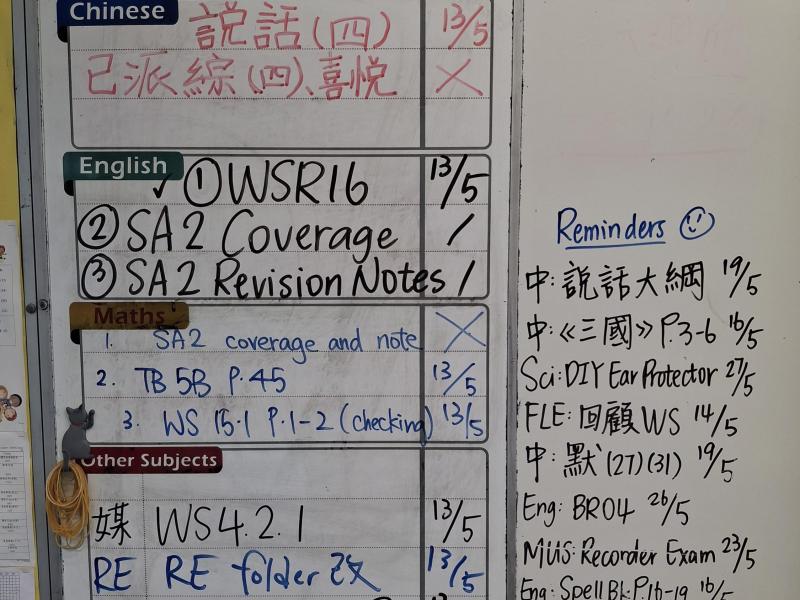 Chinese
説話(四) 13/5
已派綜(四)、喜悅 ×
English
✓ ① WSR16 13/5
② SA2 Coverage /
③ SA2 Revision Notes /
Maths
1. SA2 coverage and note ×
2. TB 5B P.45 13/5
3. WS 15.1 P.1-2 (checking) 13/5
Other Subjects
媒 WS4.2.1 13/5
RE RE folder 改 13/5
Reminders
中: 說話大綱 19/5
中:《三國》P.3-6 16/5
Sci: DIY Ear Protector 27/5
FLE: 回顧WS 14/5
中: 默(27)(31) 19/5
Eng: BR04 26/5
MUS: Recorder Exam 23/5
Eng: Spell Bk P.16-19 16/5